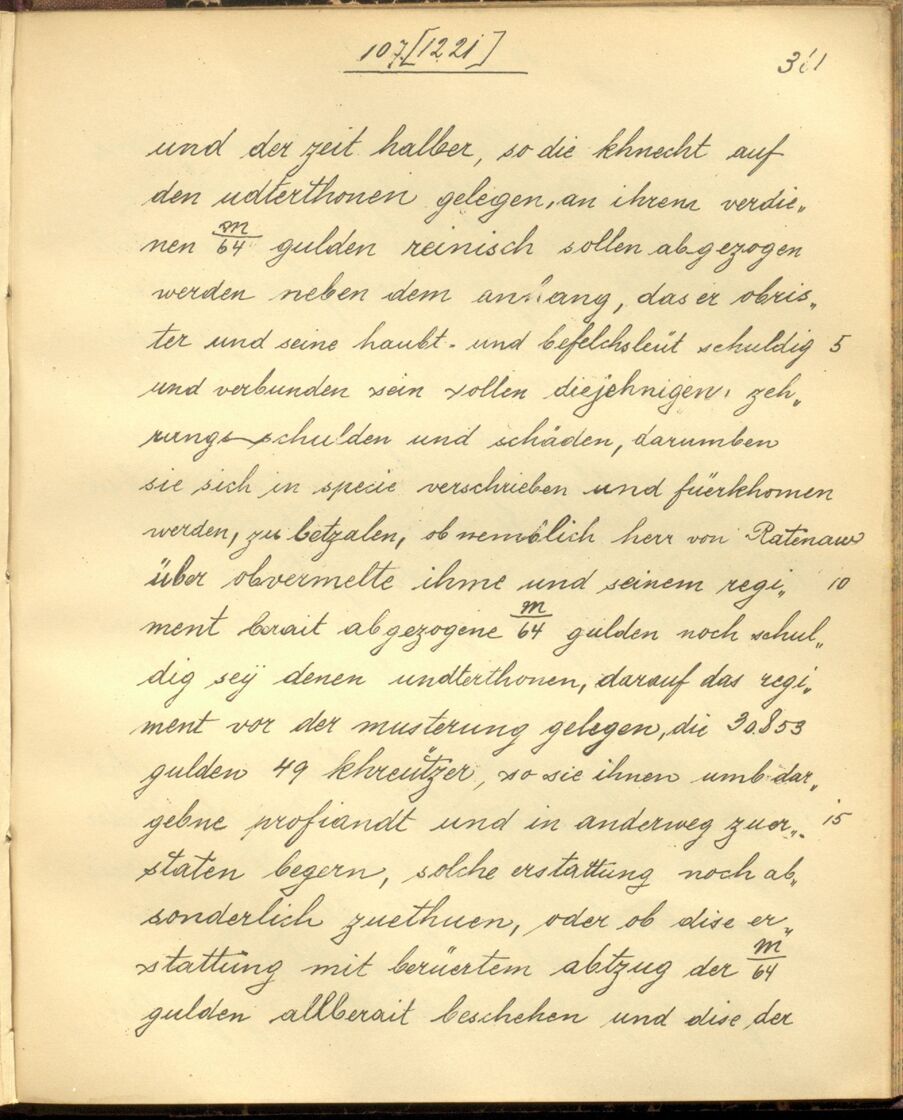 107 [1221]
und der zeit halber, so die khnecht auf
den udterthonen gelegen, an ihrem verdie„
nen m/64 gulden reinisch sollen abgezogen
werden neben dem anhang, das er obris„
ter und seine haubt- und befelchsleüt schuldig 5
und verbunden sein sollen diejehnigen zeh„
rungsschulden und schäden, darumben
sie sich in specie verschrieben und füerkhomen
werden, zu betzalen, ob nemblich herr von Ratenaw
über obvermelte ihme und seinem regi„ 10
ment berait abgezogene m/64 gulden noch schul„
dig seÿ denen undterthonen, darauf das regi„
ment vor der musterung gelegen, die 30.853
gulden 49 khreützer, so sie ihnen umb dar„
gebne profiandt und in anderweg zuer„ 15
staten begern, solche erstattung noch ab„
sonderlich zuethuen, oder ob dise er„
stattung mit berüertem abtzug der m/64
gulden allberait beschehen und dise der